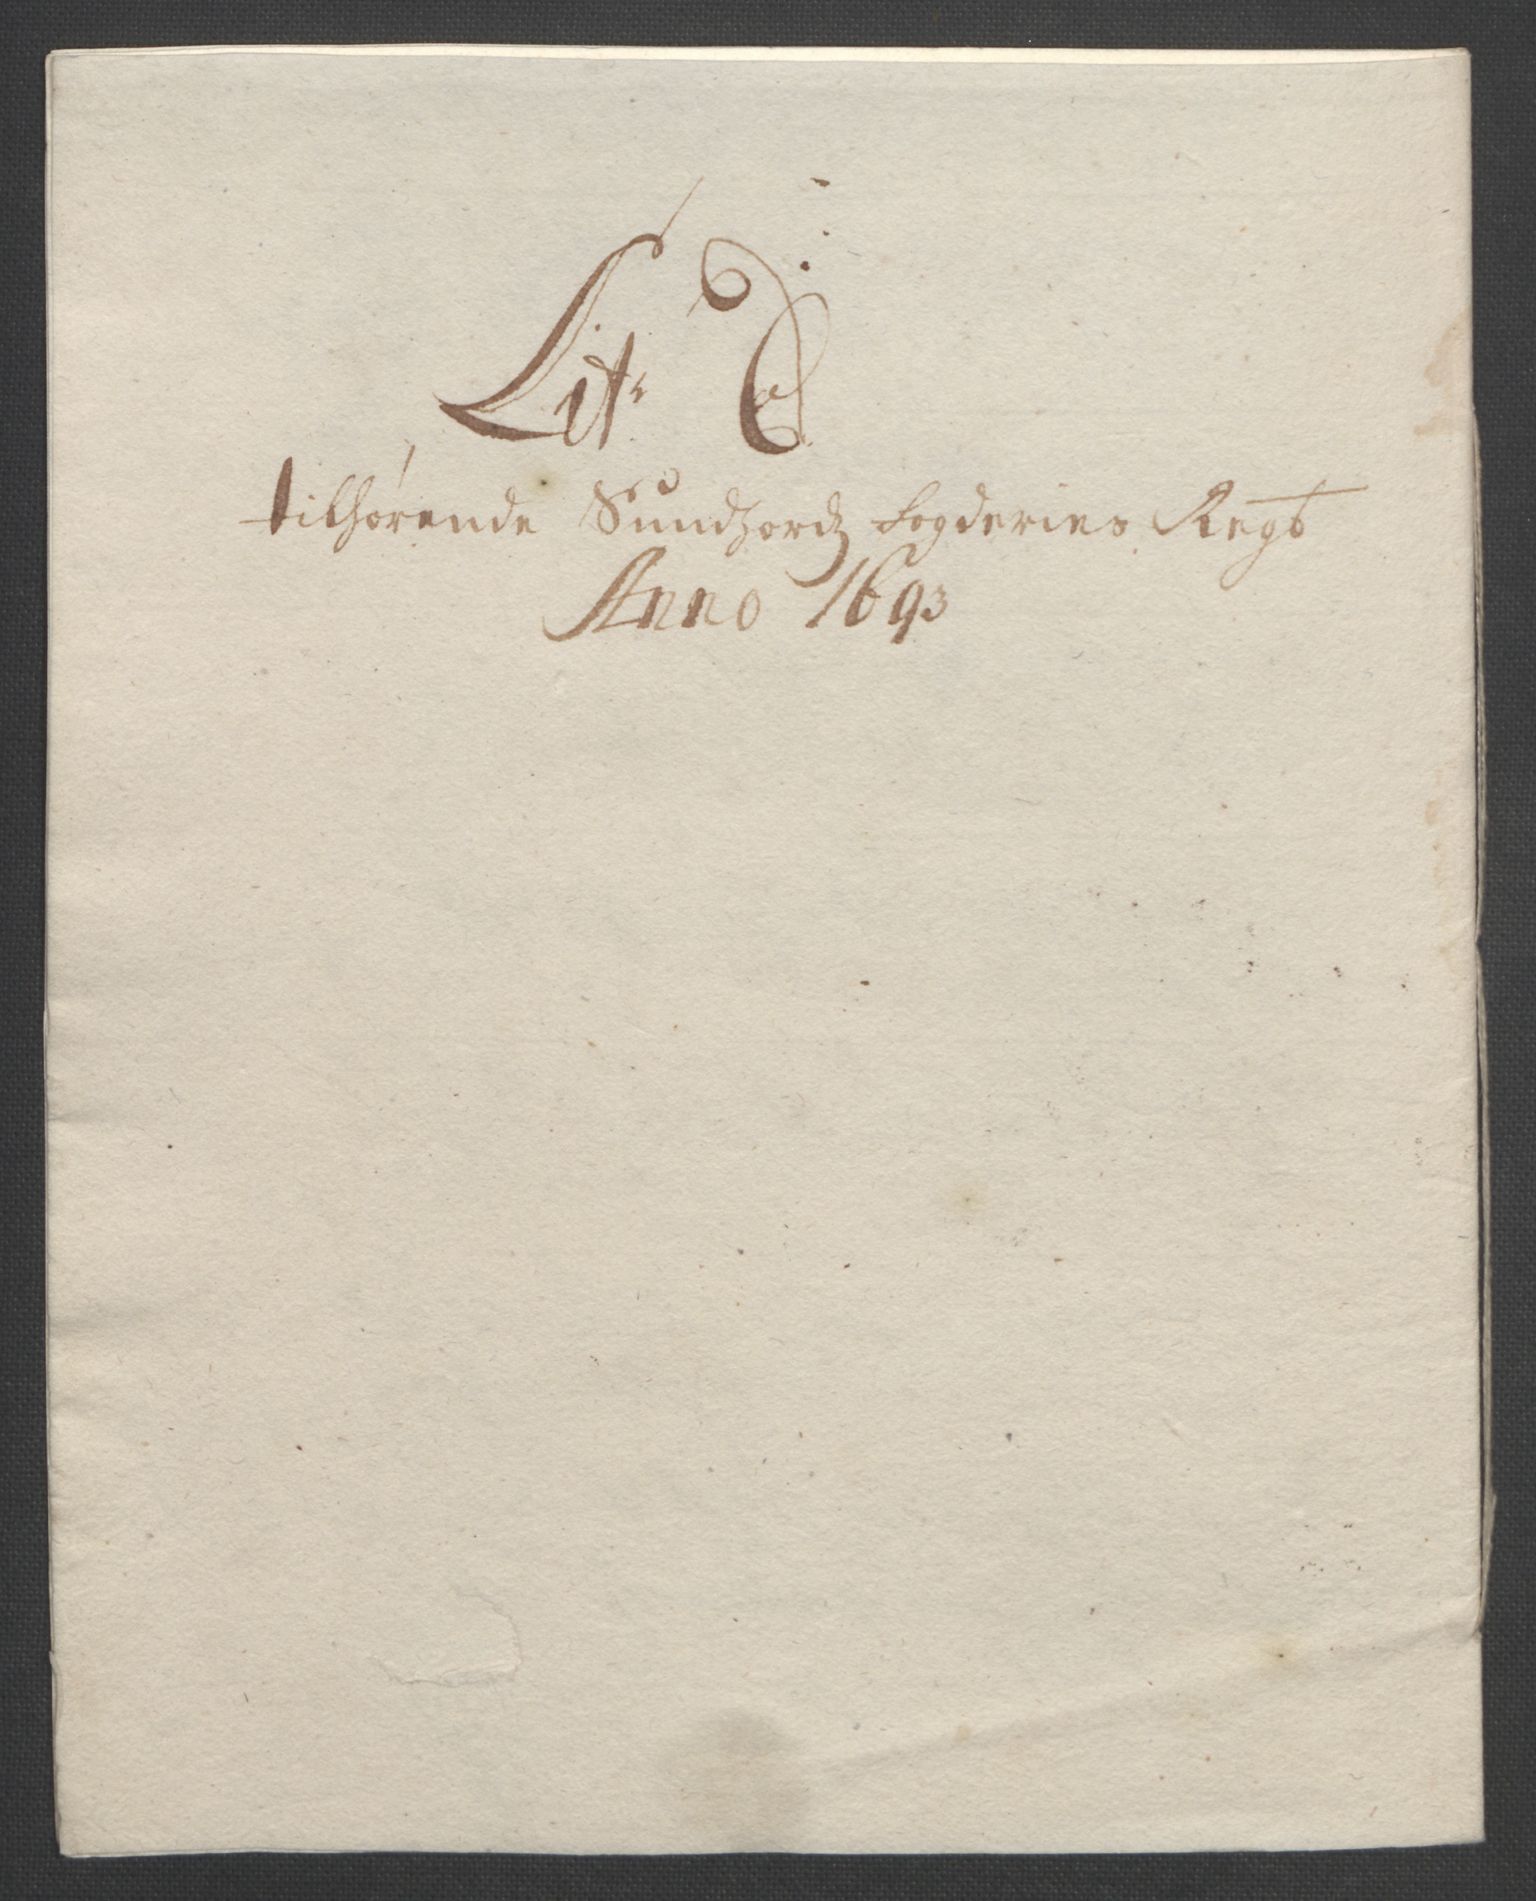 Lit: C
tilhørende Sundfiordz Fogderies Regb
Anno 1693